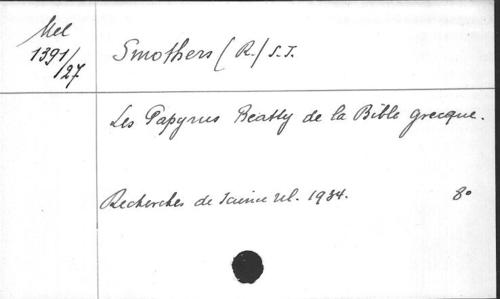 Mel
1391/
127
Smothers (R.) S.J.
Les Papyrus Beatty de la Bible grecque.
Recherches de Science rel. 1934. 8°